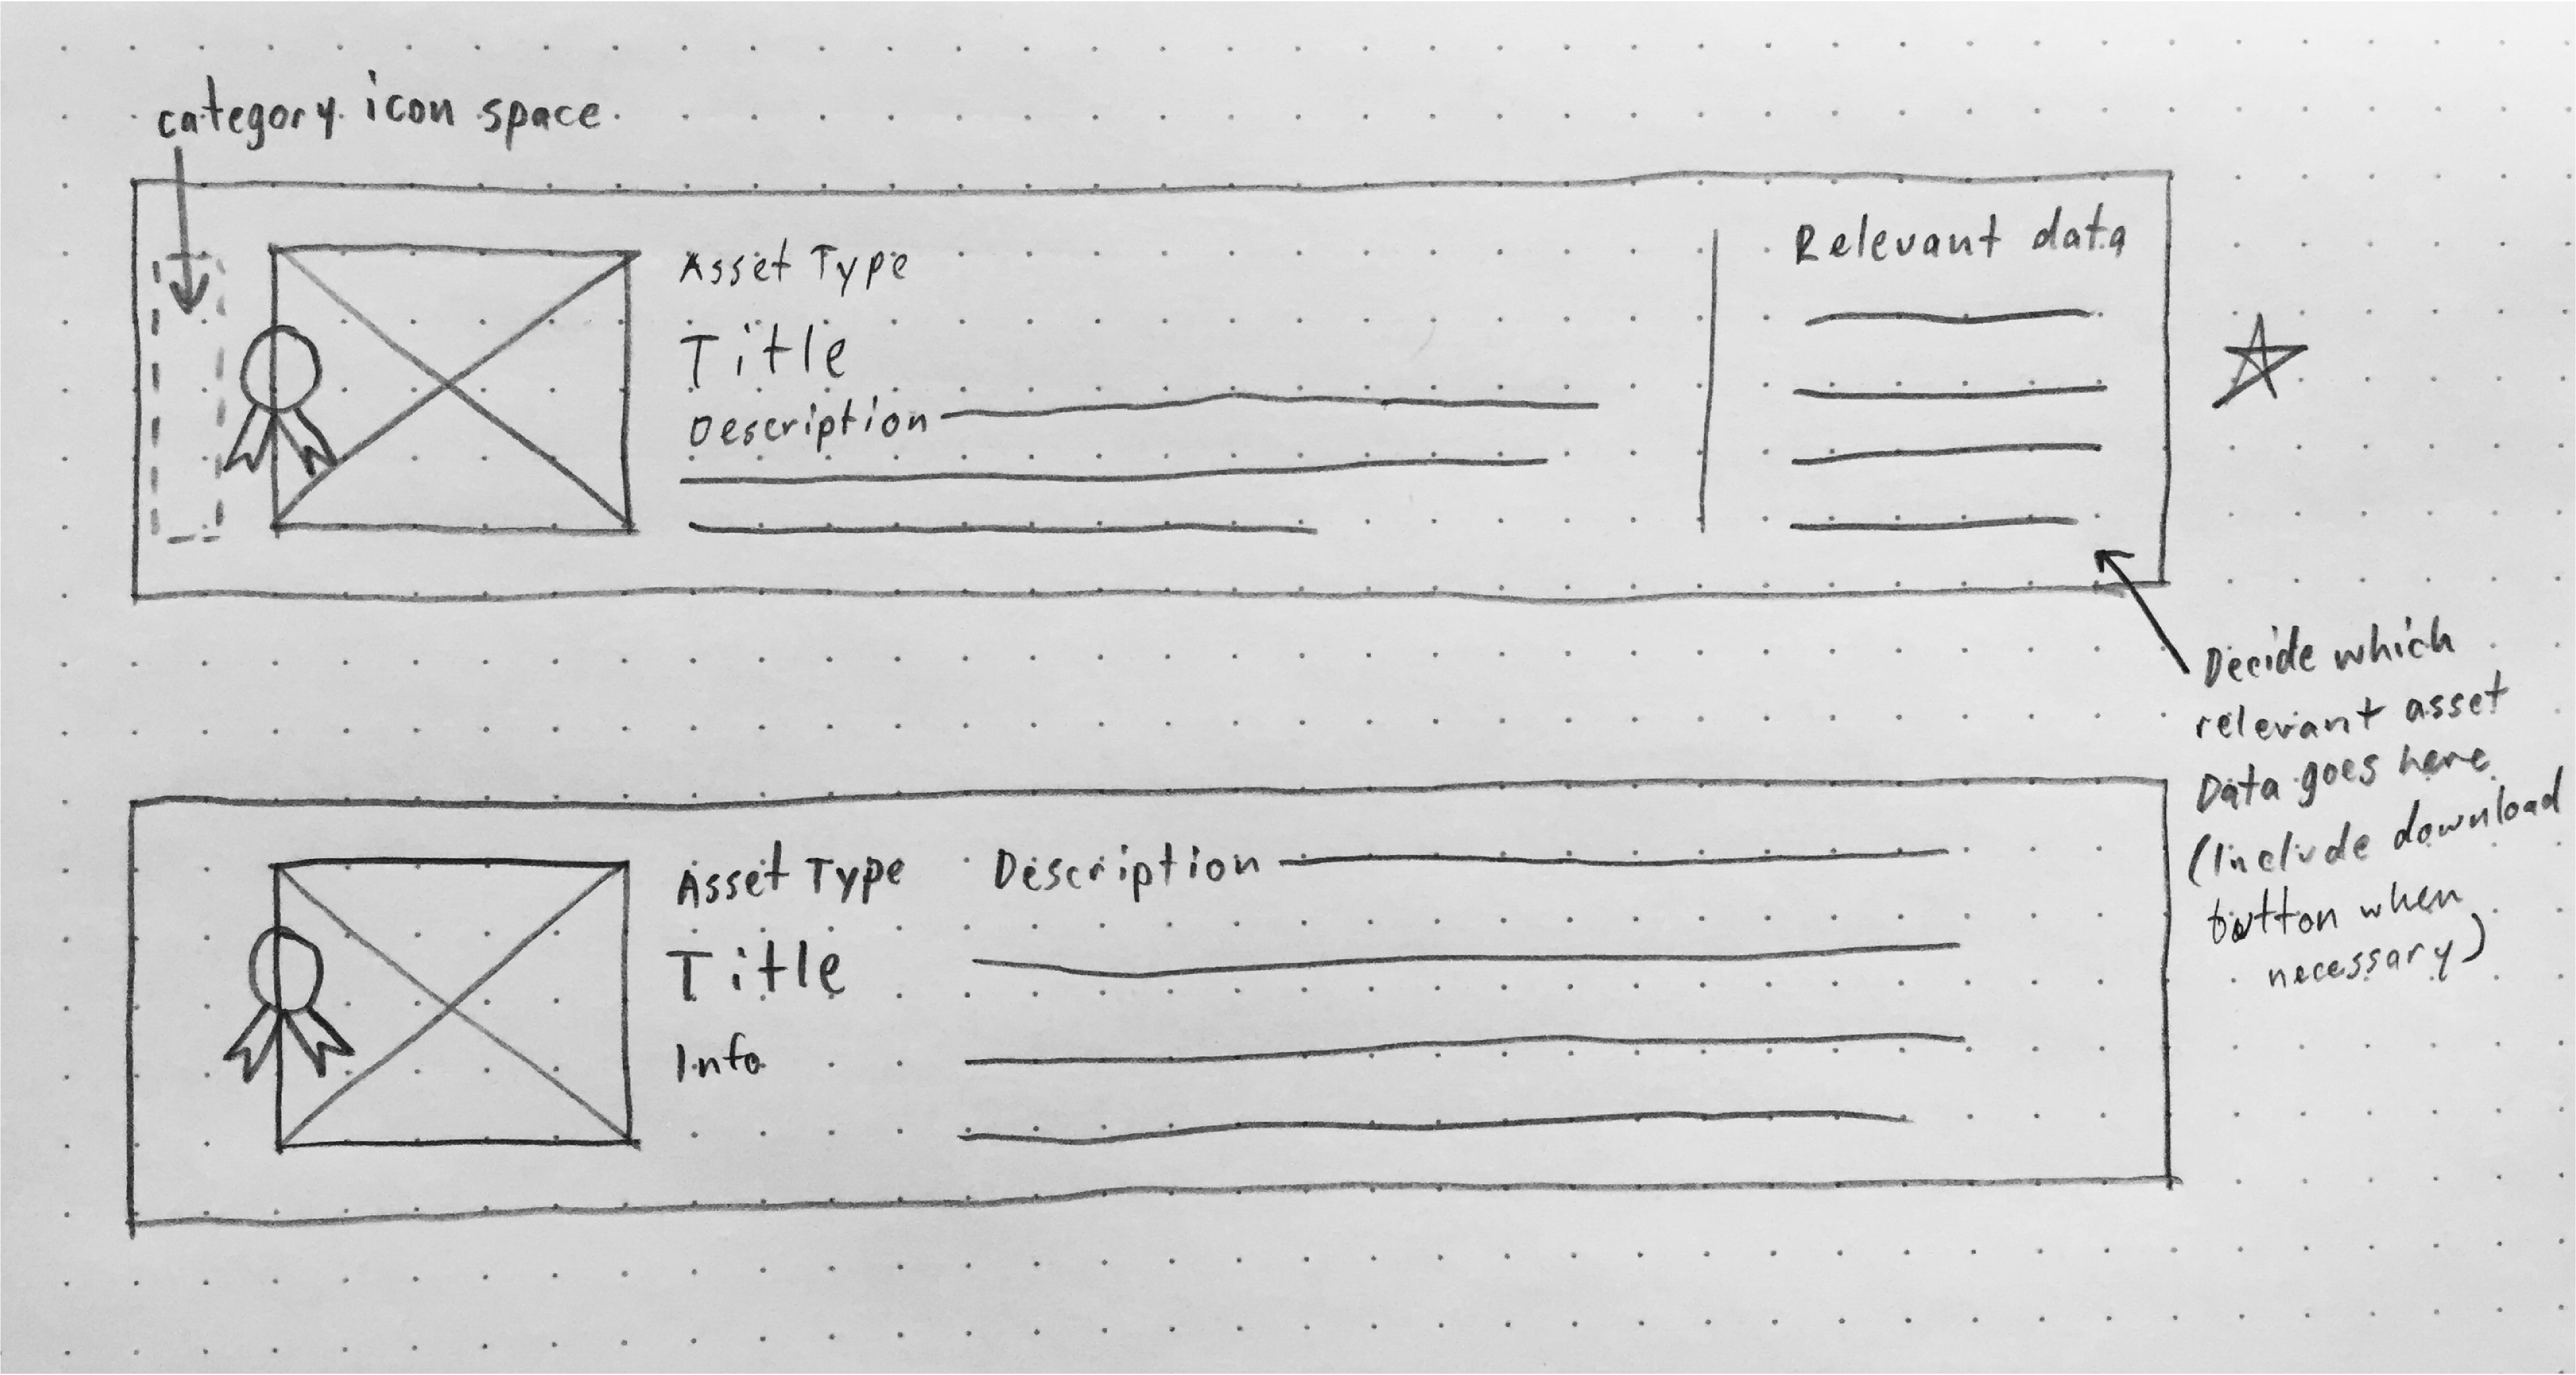 category icon space
Asset Type
Title
Description
Relevant data
Decide which
relevant asset
Data goes here
(Include download
button when
necessary)
Asset Type
Title
Info
Description